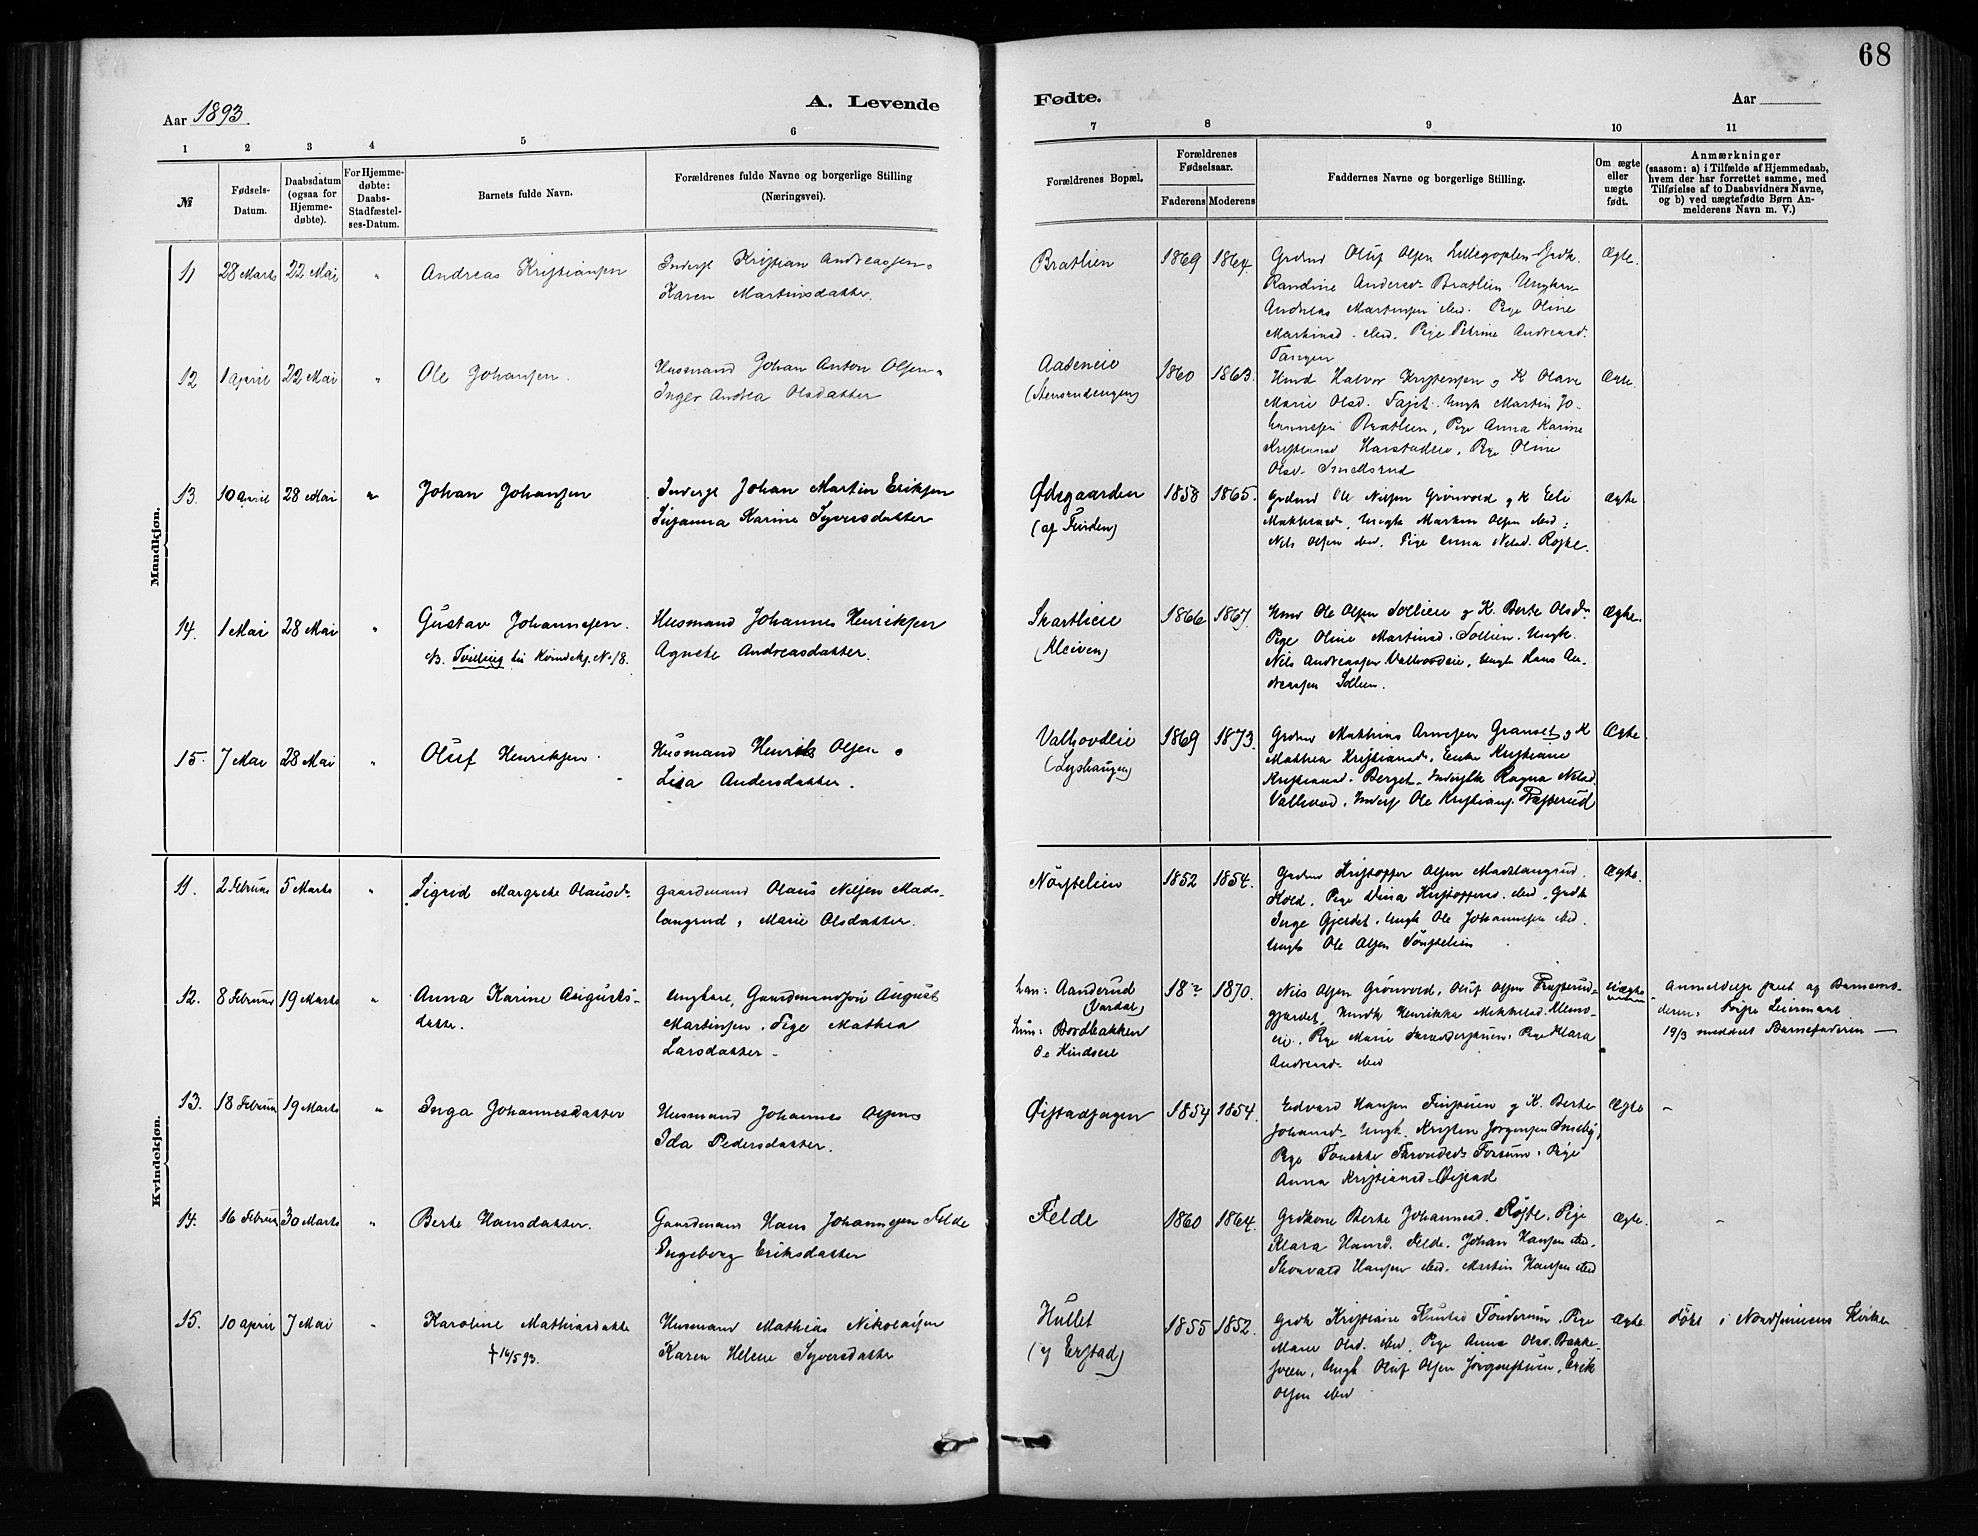 68
Aar 1893.
A. Levende
Fødte.
Aar
1 2 3 4 5 6 7 8 9 10 11
№
Fødsels-Datum.
Daabsdatum (ogsaa for Hjemme-døbte).
For Hjemme-døbte: Daabs-Stadfæstel-ses-Datum.
Barnets fulde Navn.
Forældrenes fulde Navne og borgerlige Stilling (Næringsvei).
Forældrenes Bopæl.
Forældrenes Fødselsaar.
Faderens Moderens
Faddernes Navne og borgerlige Stilling.
Om ægte eller uægte født.
Anmærkninger
(saasom: a) i Tilfælde af Hjemmedaab,
hvem der har forrettet samme, med
Tilføielse af to Daabsvidners Navne,
og b) ved uægtefødte Børn An-
melderens Navn m. V.)
Mandkjøn.
11 28 Marts 22 Mai " Andreas Kristiansen
Inderst Kristian Andreassen o
Karen Martinsdatter.
Bratlien 1869 1864.
Grdmd Oluf Olsen Grdk.
Randine Andersd. Bratlien Ungkar
Andreas Martinsen ibid. Pige Oline
Martinsd. ibid. Pige Petrine Andreasd.
Tangen
Ægte.
12 1 April 22 Mai " Ole Johansen.
Husmand Johan Anton Olsen o
Inger Andrea Olsdatter
Aaseneie
(Stensrudengen)
1860 1863.
Hmd Halvor Kristensen o K Olave
Marie Olsd. Fajet. Ungk Martin Jo-
hannesen Bratlien, Pige Anna Karine
Kristensd Harstadeie, Pige Oline
Olsd. Smedsrud
Ægte.
13. 10 April 28 Mai " Johan Johansen
Inderst Johan Martin Eriksen
Susanna Karine Syversdatter
Ødegaarden
(af Finden)
1858 1865.
Grdmd Ole Nilsen Grønvold o K Eli
Mathiasd, Ungk Martin Olsen ibid.
Nils Olsen ibid. Pige Anna Nilsd. Røste.
Ægte
14. 1 Mai 28 Mai " Gustav Johannesen.
N. Tvilling til Kvindekj. N. 18.
Husmand Johannes Henriksen
Agnete Andreasdatter.
Skartlieie
(Kleiven)
1866 1867.
Hmd Ole Olsen Sollieie o K. Berte Olsd
Pige Oline Martinsd. Sollien. Ungk.
Nils Andreassen Valhovdeie, Ungk Hans An-
dreassen Sollien.
Ægte.
15. 7 Mai 28 Mai " Oluf Henriksen.
Husmand Henrik Olsen o
Lisa Andersdatter.
Valhovdeie
(Lyshaugen)
1869 1873.
Grdmd Mathias Arnesen Granset o K
Mathea Kristiansd, Enke Kristiane
Kristiansd. Berget. Ragna Nilsd.
Valhovd. Inderst Ole Kristians.
Ægte.
Kvindekjøn.
11. 2 Februar 5 Marts " Sigrid Margrete Olausd.
Gaardmand Olaus Nilsen Mads-
langrud, Marie Olsdatter.
Nørstelien 1852 1854.
Grdmd Kristoffer Olsen Madslangrud
Hold. Pige Dina Kristoffersd. ibid. Grdk
Inge Gjerdet. Ungk Ole Johannesen ibid.
Ungk Ole Olsen Nørstelien
Ægte.
12. 8 Februar 19 Marts " Anna Karine Augusts-
datter.
Ungkar, Gaardmandssøn August
Martinsen. Pige Mathea
Larsdatter.
han: Aanderud
(Vardal)
hun: Bordbakken
18? 1870.
Nils Olsen Grønvold, Oluf Olsen
gjerdet, Hmdk Henrikka Mikkelsd.
Pige Marie Pige Klara
Andreasd. ibid
uægte
Anmeldelse skeet af Barnemo-
deren. Leiermaal.
19/3 meddelt Barnefaderen —
13. 18 Februar 19 Marts " Inga Johannesdatter
Husmand Johannes Olsen o
Ida Pedersdatter.
Øistadsagen 1854 1854.
Edvard Hansen Finstuen o K. Berte
Johansd. Ungk. Kristen Jørgensen Smeby,
Pige Forsum. Pige
Anna Kristiansd. Øistad
Ægte —
14. 16 Februar 30 Marts " Berte Hansdatter.
Gaardmand Hans Johannesen Felde
Ingeborg Eriksdatter
Felde 1860 1864.
Grdkone Berte Johannesd. Røste. Pige
Klara Hansd. Felde. Johan Hansen ibd.
Thorvald Hansen ibd. Martin Hansen ibd
Ægte. —
15. 10 April 7 Mai " Karoline Mathiasdatter
† 14/5 93.
Husmand Mathias Nikolaisen
Karen Helene Syversdatter
Hullet
(af Erstad)
1855 1852.
Grdk Kristiane Knutsd Tønderum, Pige
Marie Olsd. ibid, Pige Anne Olsd. Bakke-
Ungk Oluf Olsen Jørgenstuen, Erik
Olsen ibid
Ægte.
døbt i Nordsinnens Kirke